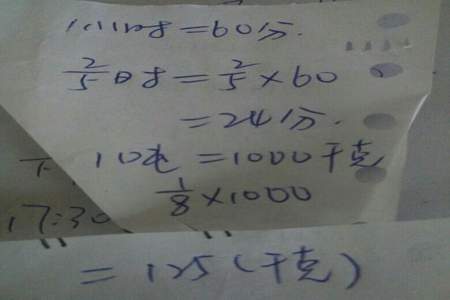 1小时=60分.
2/5时=2/5×60
=24分.
10吨=1000千克
1/8×1000
17:30
=125(千克)